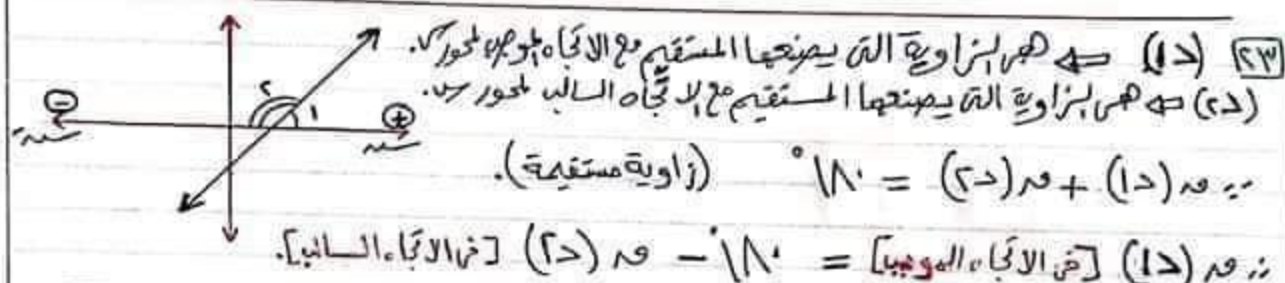 ٢٣ (د١) ⇐ هى الزاوية التى يصنعها المستقيم مع الاتجاه الموجب لمحور س.
(د٢) ⇐ هى الزاوية التى يصنعها المستقيم مع الاتجاه السالب لمحور س.
∵ ق (د١) + ق (د٢) = ١٨٠° (زاوية مستقيمة).
∴ ق (د١) [فى الاتجاه الموجب] = ١٨٠° − ق (د٢) [فى الاتجاه السالب].
⊖ ⊕
٢ ١